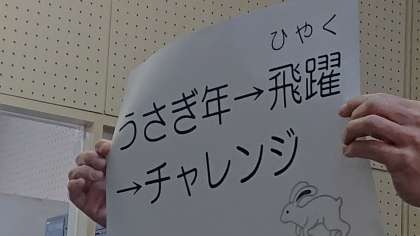 ひやく
うさぎ年→飛躍
→チャレンジ